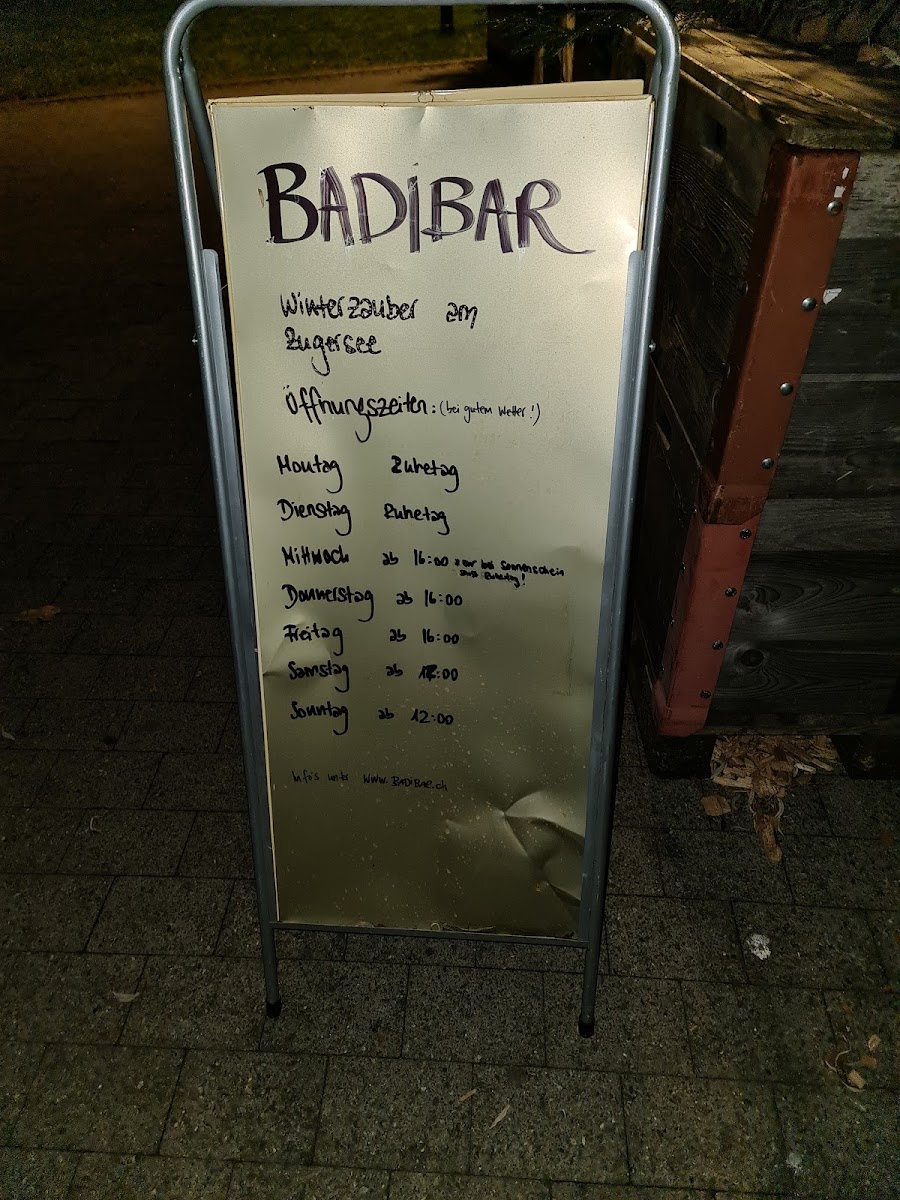 BADIBAR
Winterzauber am
Zugersee
Öffnungszeiten: (bei gutem Wetter!)
Montag Ruhetag
Dienstag Ruhetag
Mittwoch ab 16:00 *nur bei Sonnenschein
sonst Ruhetag!
Donnerstag ab 16:00
Freitag ab 16:00
Samstag ab 12:00
Sonntag ab 12:00
Info's unter www.BADiBAR.ch